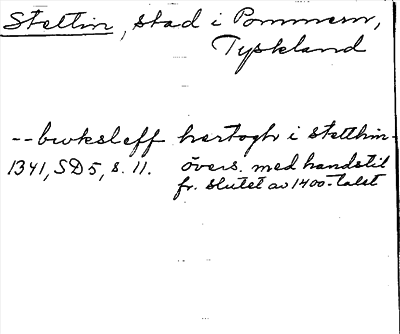 Stettin, stad i Pommern,
Tyskland
-- bwksleff hertogh i stetthin -
1341, SD 5, s. 11. övers. med handstil
fr. slutet av 1400-talet